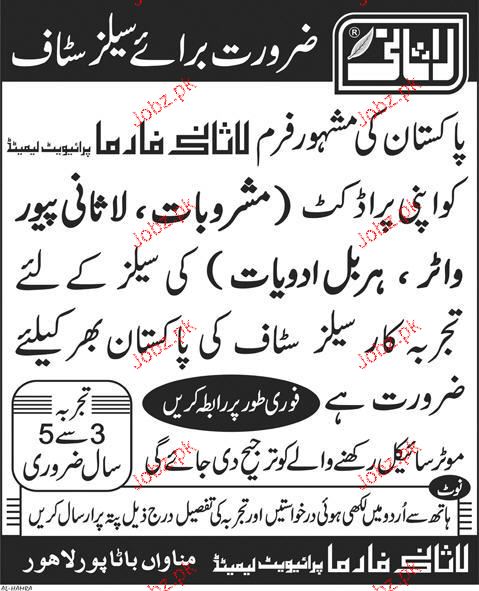 ضرورت برائے سیلز سٹاف
لاثانی ®
پاکستان کی مشہور فرم لاثانی فارما پرائیویٹ لیمیٹڈ
کو اپنی پراڈکٹ (مشروبات، لاثانی پیور
واٹر، ہربل ادویات) کی سیلز کے لئے
تجربہ کار سیلز سٹاف کی پاکستان بھر کیلئے
ضرورت ہے
فوری طور پر رابطہ کریں
تجربہ
3 سے 5
سال ضروری
موٹر سائیکل رکھنے والے کو ترجیح دی جائے گی
نوٹ
ہاتھ سے اُردو میں لکھی ہوئی درخواستیں اور تجربہ کی تفصیل درج ذیل پتہ پر ارسال کریں
لاثانی فارما پرائیویٹ لیمیٹڈ مناواں باٹا پور لاہور
AL-HAMRA
Jobz.pk
Jobz.pk
Jobz.pk
Jobz.pk
Jobz.pk
Jobz.pk
Jobz.pk
Jobz.pk